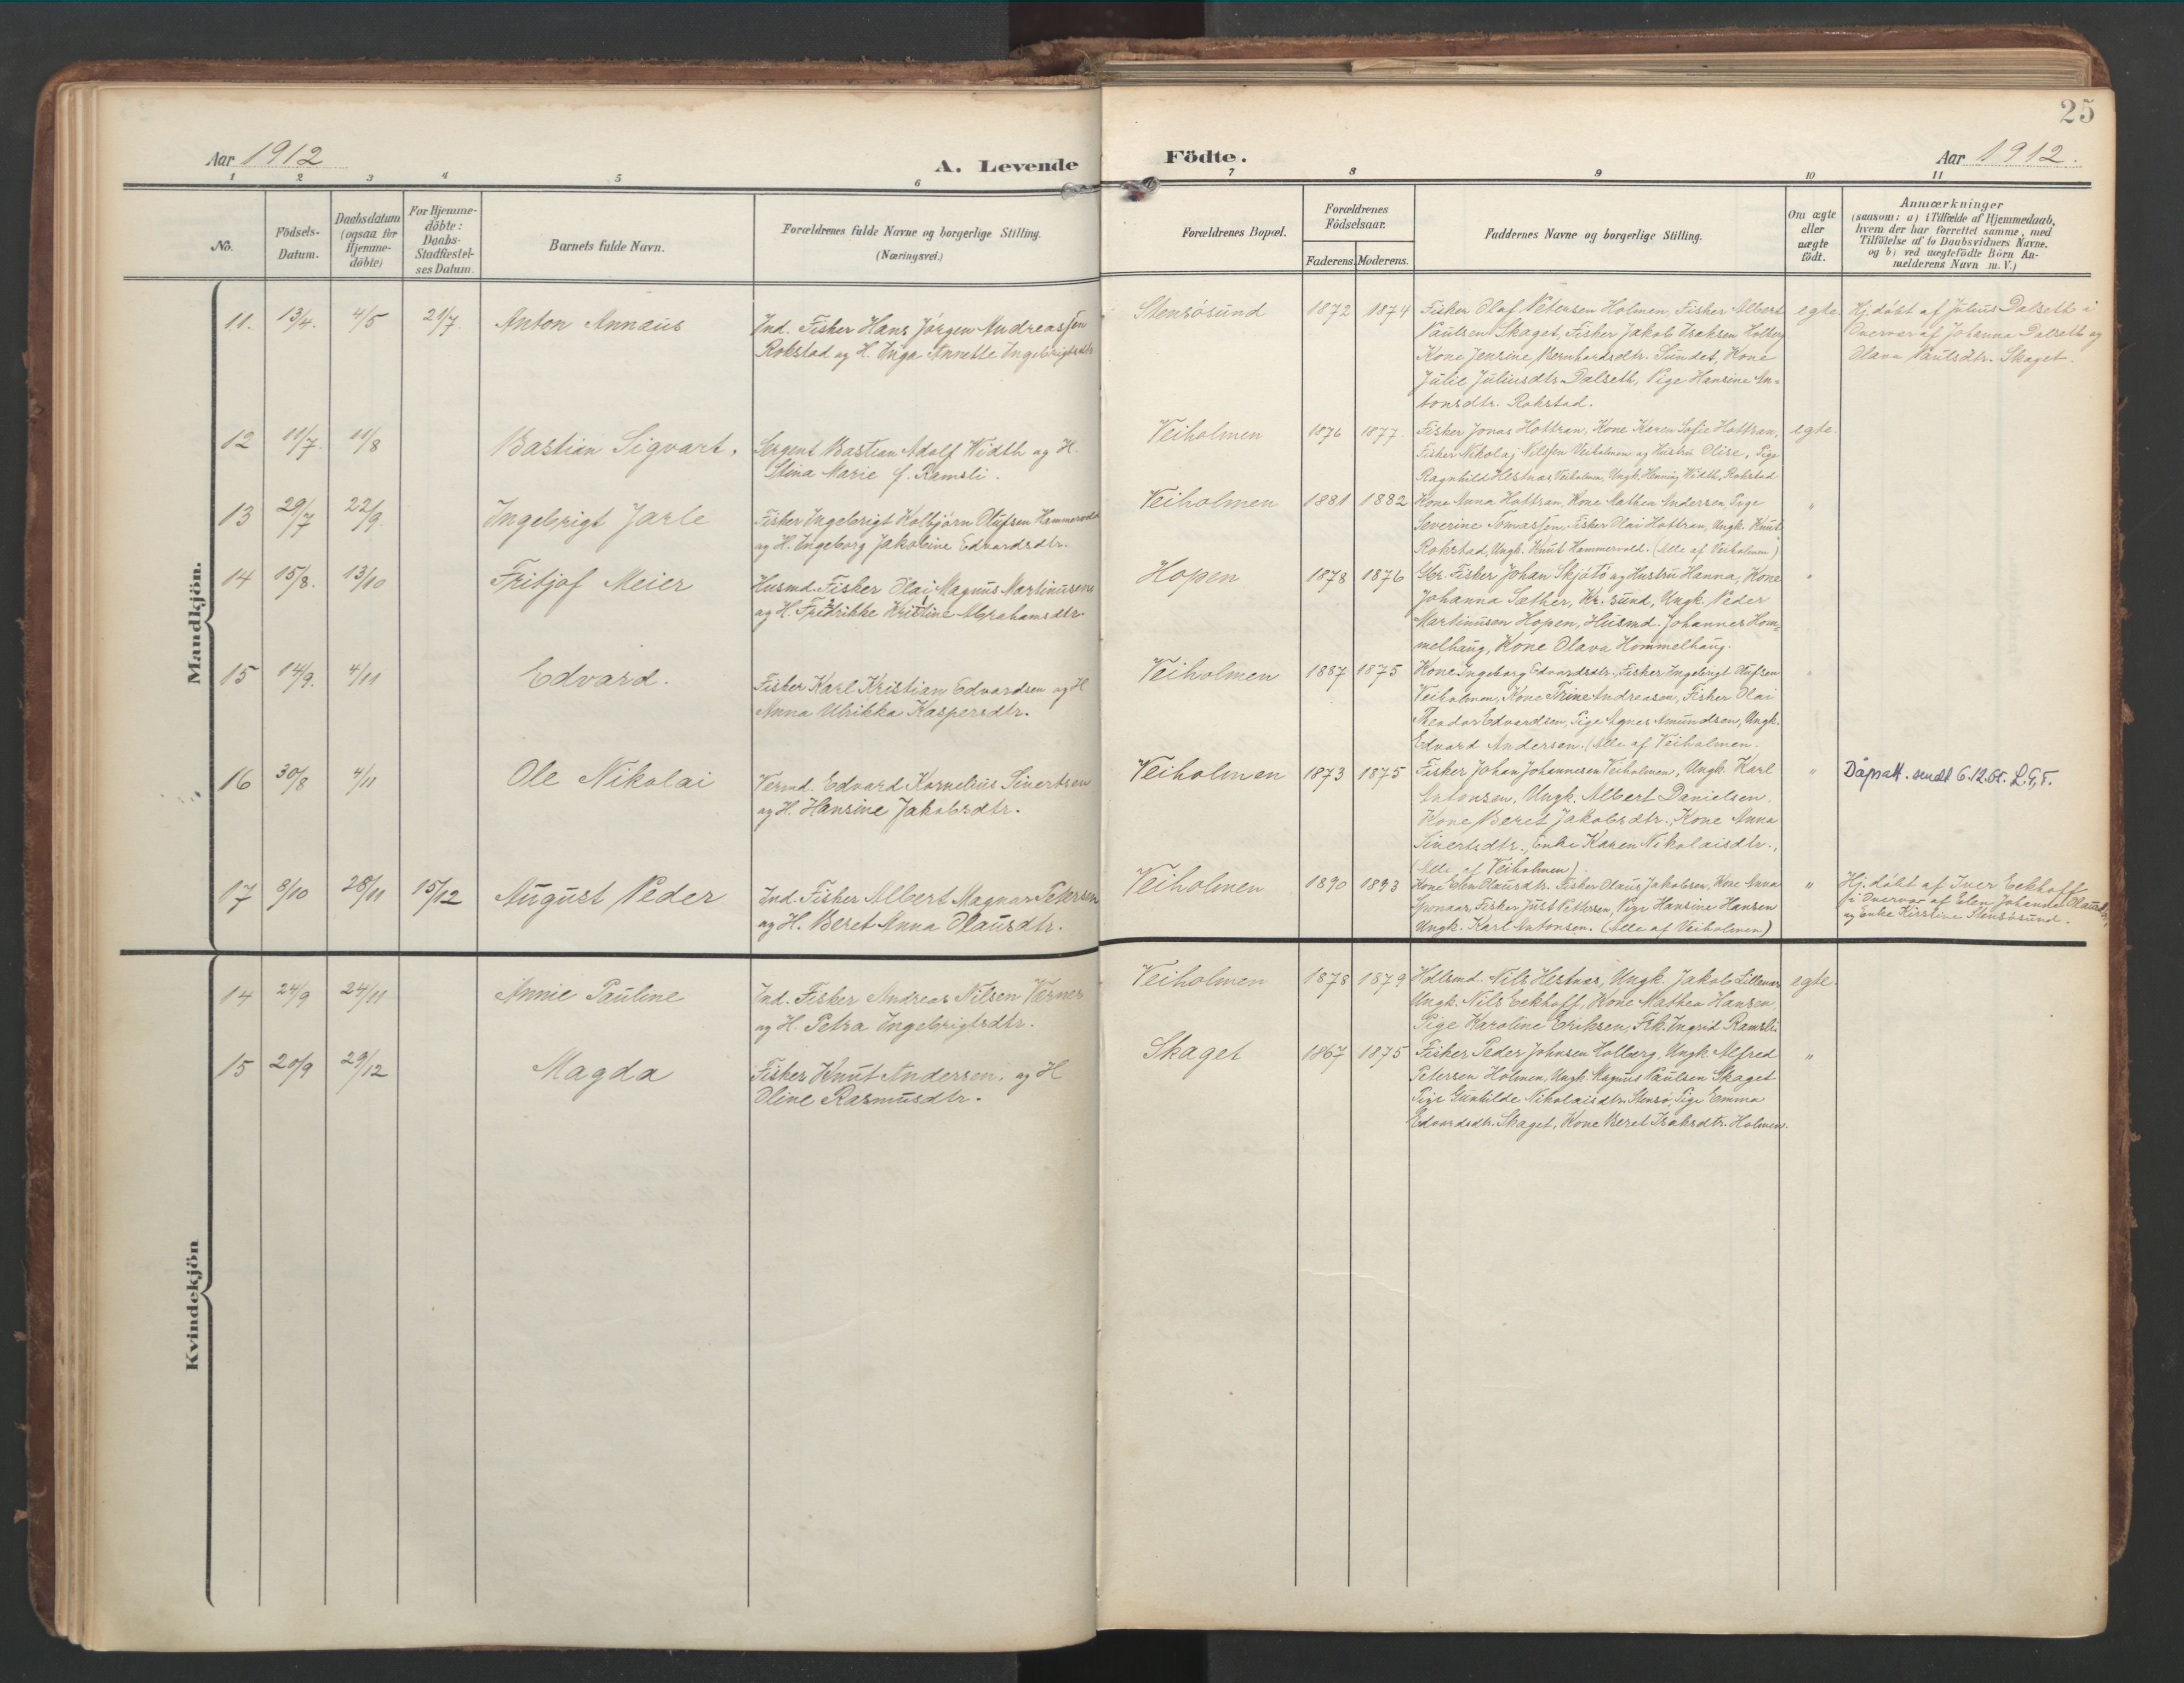 25
Aar 1912
A. Levende
Födte.
Aar 1912.
1 2 3 4 5 6 7 8 9 10 11
No.
Födsels-
Datum.
Daabsdatum
(ogsaa for
Hjemme-
döbte)
For Hjemme-
döbte:
Daabs-
Stadfæstel-
ses Datum.
Barnets fulde Navn.
Forældrenes fulde Navne og borgerlige Stilling.
(Næringsvei.)
Forældrenes Bopæl.
Forældrenes
Födselsaar.
Faderens. Moderens.
Faddernes Navne og borgerlige Stilling.
Om ægte
eller
uægte
födt.
Anmærkninger
(saasom: a) i Tilfælde af Hjemmedaab,
hvem der har forrettet samme, med
Tilföielse af to Daabsvidners Navne,
og b) ved uægtefödte Börn An-
melderens Navn m. V.)
Mandkjön.
11. 13/4. 4/5 21/7. Anton Annæus
Ind. Fisker Hans Jørgen Andreassen
Rokstad og H. Inga Annette Ingebrigtsdtr.
Stensøsund 1872 1874
Fisker Olaf Petersen Holmen, Fisker Albert
Paulsen Skaget, Fisker Jakob Isaksen Holberg
Kone Jensine Bernhardsdtr. Sundet, Kone
Julie Juliusdtr. Dalseth, Pige Hansine An-
tonsdtr. Rokstad.
egte.
Hj. døbt af Julius Dalseth i
Overvær af Johanna Dalseth og
Olava Paulsdtr. Skaget.
12 11/7. 11/8 Bastian Sigvart.
Sergent Bastian Adolf Width og H.
Stina Marie f. Ramsli.
Veiholmen 1876 1877.
Fisker Jonas Hottran, Kone Karen Sofie Hottran,
Fisker Nikolaj Nilssen Veiholmen og Hustru Olise, Pige
Ragnhild Hestnæs Veiholmen, Ungk. Henning Width, Rokstad
egte.
13 29/7 22/9. Ingebrigt Jarle
Fisker Ingebrigt Kolbjørn Olufsen Hammervold
og H. Ingeborg Jakobine Edvardsdtr.
Veiholmen 1881 1882
Kone Anna Hottran, Kone Mathea Andersen, Pige
Severine Tomassen, Fisker Olai Hottran, Ungk. Knut
Rokstad, Ungk. Knut Hammervold. (Alle af Veiholmen)
"
14 15/8. 13/10 Fritjof Meier
Husmd. Fisker Olai Magnus Martinusen
og H. Fredrikke Kristine Abrahamsdtr.
Hopen 1878 1876
Gbr. Fisker Johan Skjøtø og Hustru Hanna, Kone
Johanna Sæther, Kr. sund, Ungk. Peder
Martinusen Hopen, Husmd. Johannes Hom-
melhaug, Kone Olava Hommelhaug.
"
15 14/9. 4/11 Edvard.
Fisker Karl Kristian Edvardsen og H
Anna Ulrikka Kaspersdtr.
Veiholmen 1887 1875
Kone Ingeborg Edvardsdtr., Fisker Ingebrigt Olufsen
Veiholmen, Kone Trine Andreasen, Fisker Olai
Teodor Edvardsen, Pige Agnes Amundsen, Ungk.
Edvard Andersen. (Alle af Veiholmen.
"
16 30/8 4/11 Ole Nikolai
Edvard Kornelius Sivertsen
og H. Hansine Jakobsdtr.
Veiholmen 1873 1875
Fisker Johan Johannesen Veiholmen, Ungk. Karl
Antonsen, Ungk. Albert Danielsen.
Kone Beret Jakobsdtr., Kone Anna
Sivertsdtr., Enke Karen Nikolaisdtr.,
(Alle af Veiholmen).
"
Dåpsatt. sendt 6.12.65.
17 8/10 28/11 15/12 August Peder
Ind. Fisker Albert Magnar Petersen
og H. Beret Anna Olausdtr.
Veiholmen 1890 1893
Kone Elen Olausdtr. Fisker Olaus Jakobsen, Kone Anna
Fisker Just Pettersen, Pige Hansine Hansen
Ungk. Karl Antonsen. (Alle af Veiholmen)
"
Hj. døbt af Iver Eckhoff
i Overvær af Elen Johanna Olausdtr.
og Enke Kirstine Stensøsund.
Kvindekjön
14 24/9 24/11 Annie Pauline
Ind. Fisker Andreas Nilsen Værnes
og H. Petra Ingebrigtsdtr.
Veiholmen 1878 1879
Nils Hestnæs, Ungk. Jakob Lillenes
Ungk. Nils Eckhoff, Kone Mathea Hansen,
Pige Karoline Eriksen, Frk. Ingrid Ramsli
egte.
15 20/9 29/12 Magda
Fisker Knut Andersen. og H
Oline Rasmusdtr.
Skaget 1867 1875
Fisker Peder Johnsen Holberg, Ungk. Alfred
Petersen Holmen, Ungk. Magnus Paulsen Skaget
Pige Gunhilde Nikolaisdtr. Stensø, Pige Emma
Edvardsdtr. Skaget, Kone Beret Isaksdtr. Holmen.
"